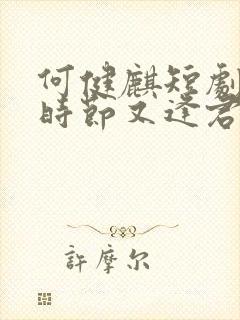 何健麒短劇
時節又逢君
許摩尔